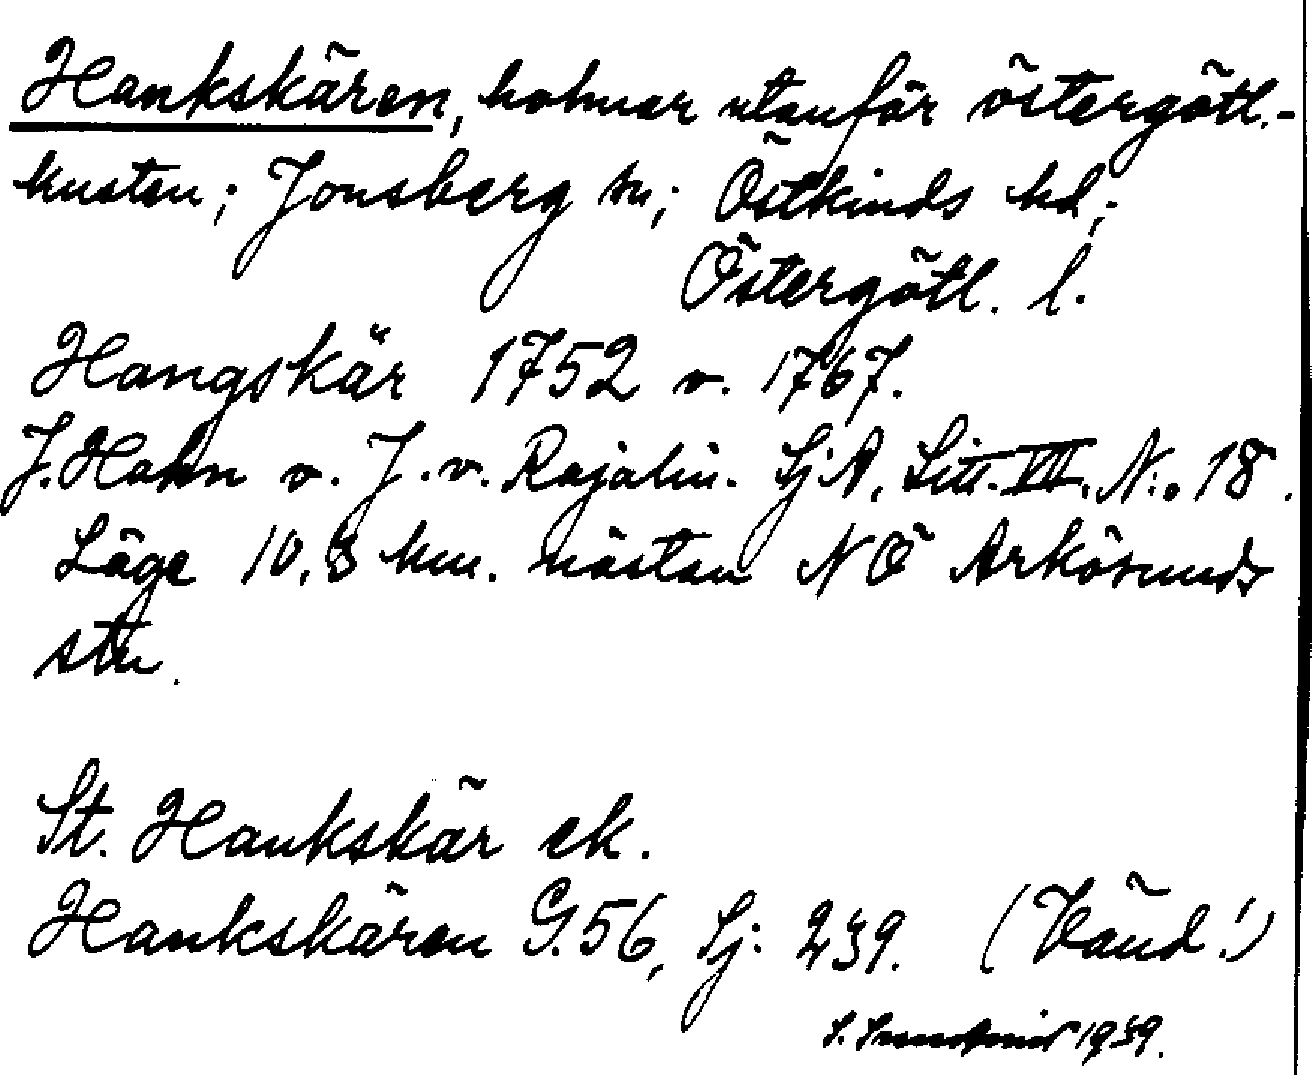 Hankskären, holmar utanför östergötl.-
kusten; Jonsberg sn; Östkinds hd;
Östergötl. l.
Hangskär 1752 o. 1767.
J. Hahn o. J. v. Rajalin. SjA, Litt. VII, N:o 18.
Läge 10,8 km. nästan NÖ Arkösunds
stn.
St. Hankskär ek.
Hankskären G. 56, Sj: 239. (Vänd!)
S. 1939.